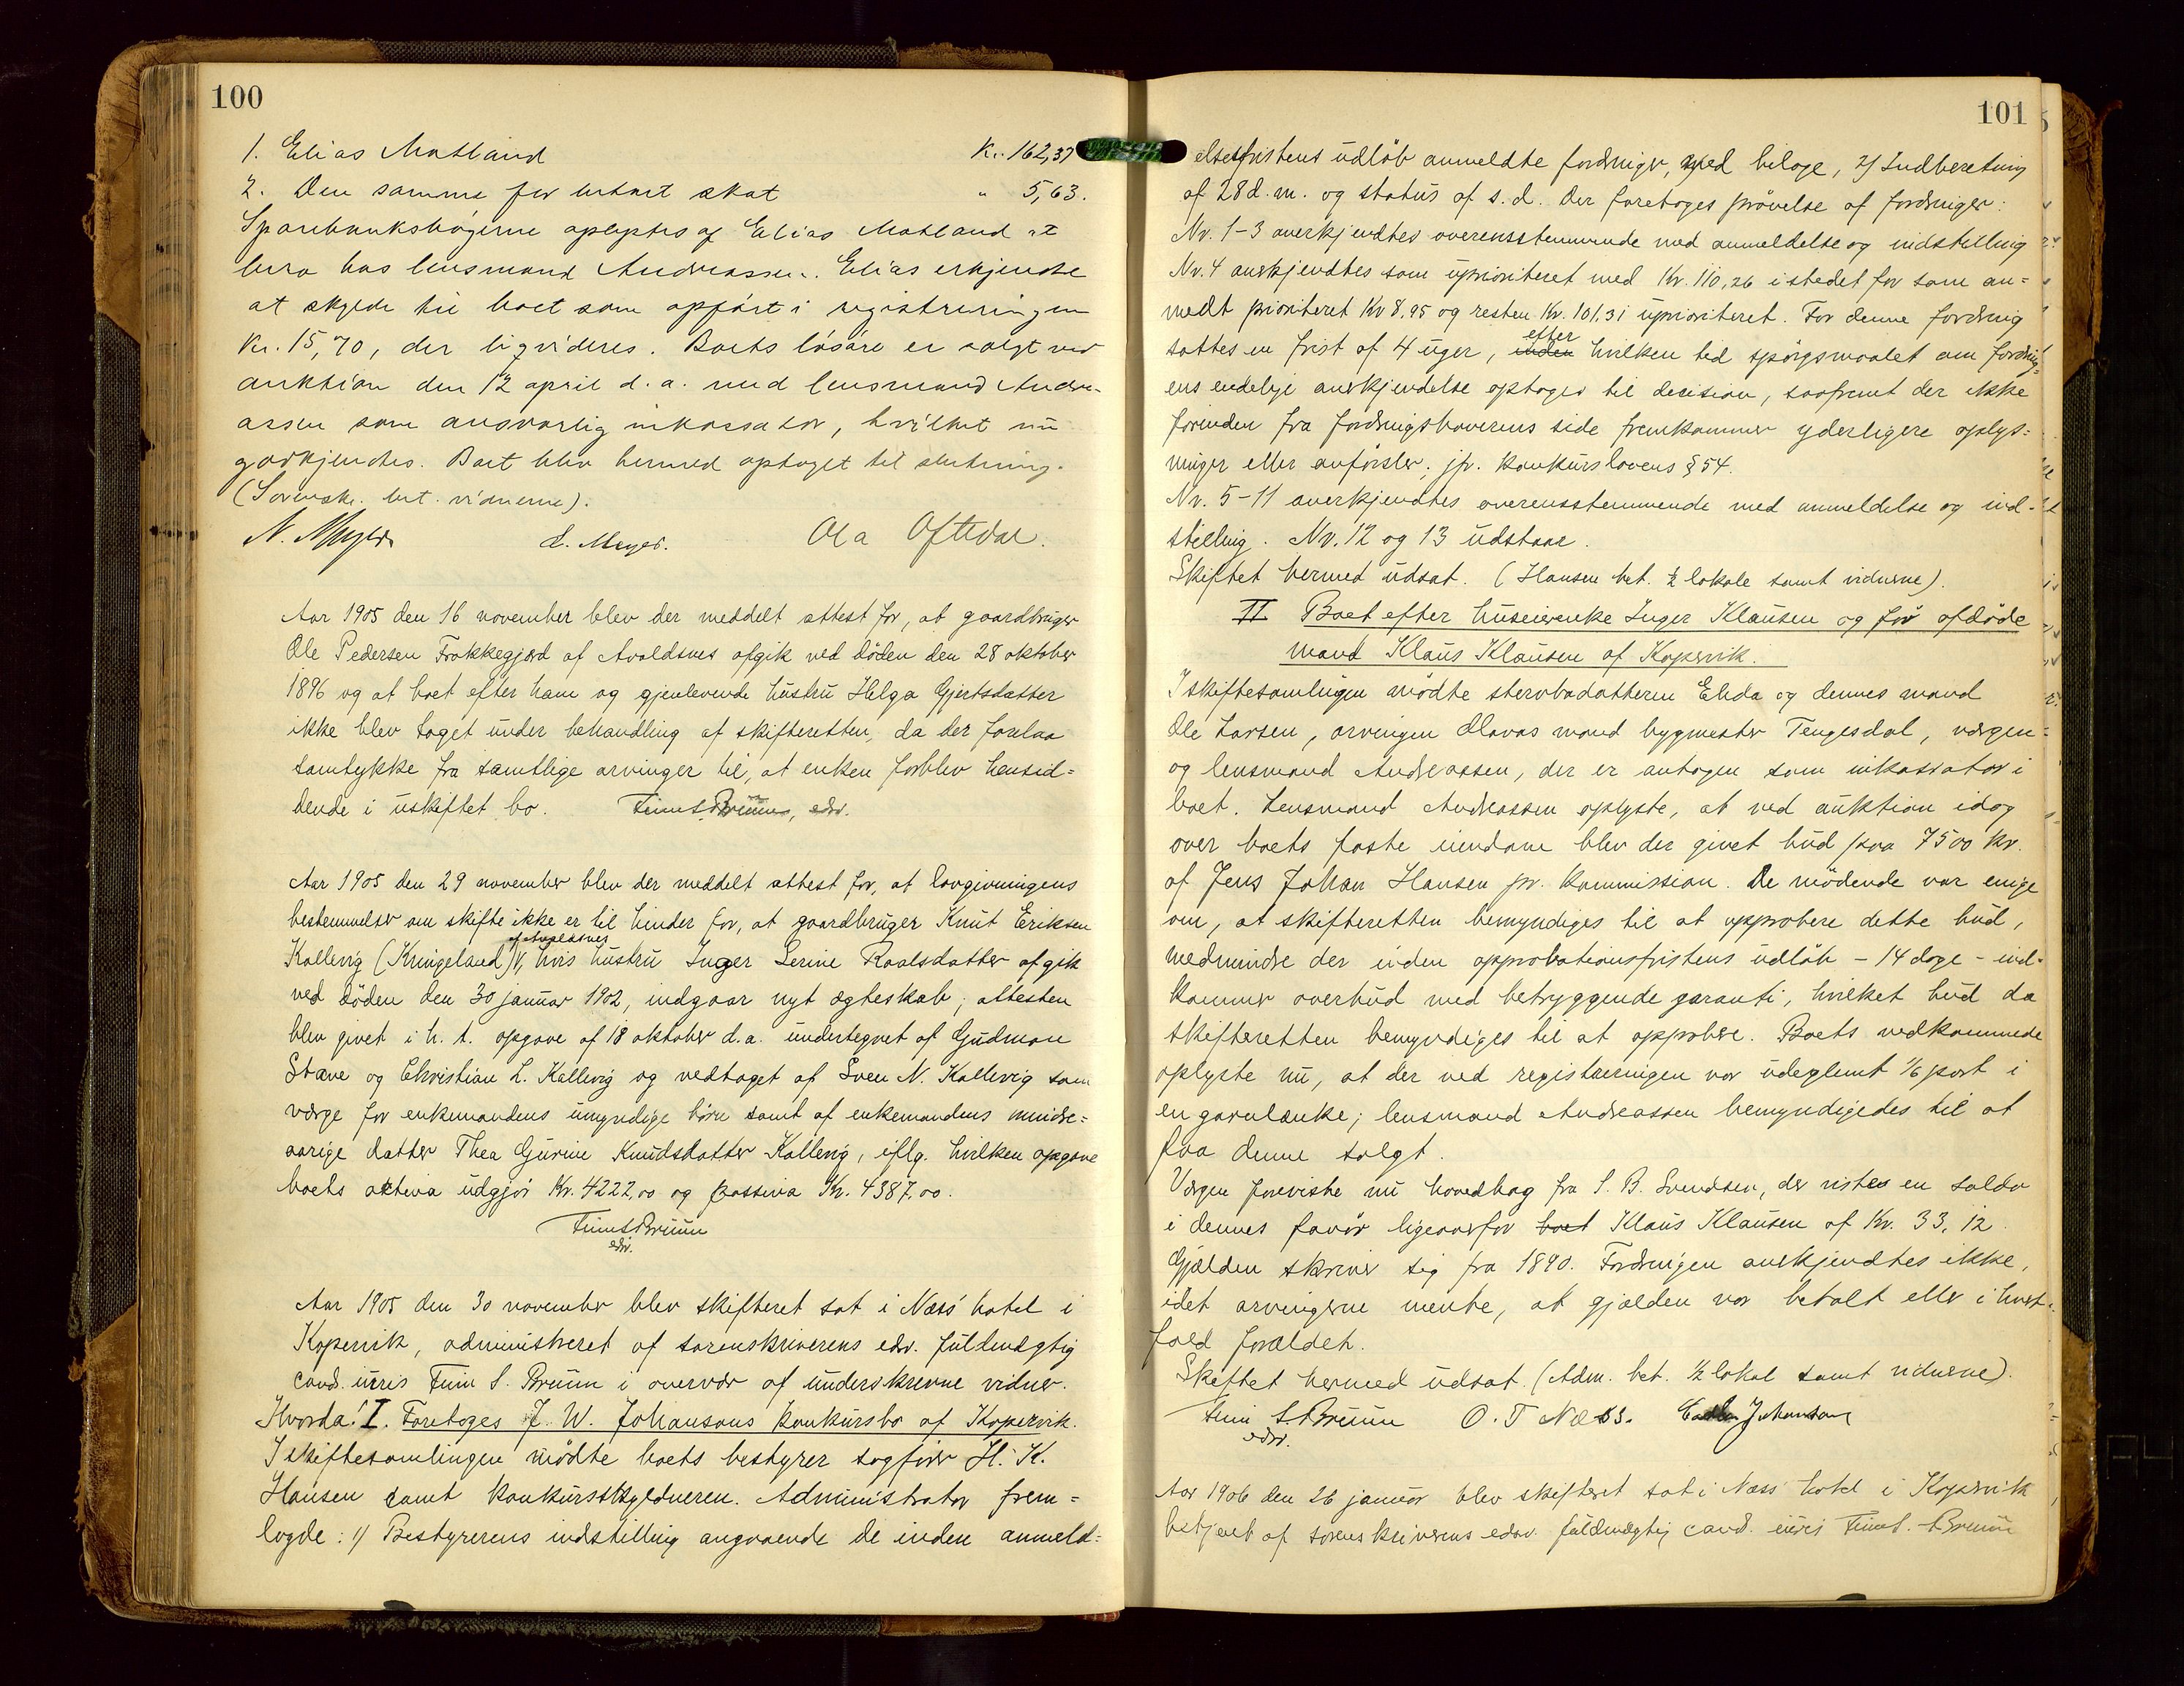 100
1. Elias Matland Kr. 162,37
2. Den samme for utlært skat " 5,63.
Sparebanksbøgerne oplystes af Elias Matland at
bero hos lensmand Andreassen. Elias erkjendte
at skylde til boet som opført i registreringen
Kr. 15,70, der liqvideres. Boets løsøre er solgt ved
auktion den 12 april d. a. med lensmand Andre-
assen som ansvarlig inkassator, hvilket nu
godkjendtes. Boet blev hermed optaget til slutning.
(Sorenskr. bet. vidnerne).
N. Meyer L. Meyer. Ola Oftedal.
Aar 1905 den 16 november blev der meddelt attest for, at gaardbruger
Ole Pedersen Frakkegjerd af Avaldsnes afgik ved døden den 28 oktober
1896 og at boet efter ham og gjenlevende hustru Helga Gjertsdatter
ikke blev taget under behandling af skifteretten, da der forelaa
samtykke fra samtlige arvinger til, at enken forblev hensid=
dende i uskiftet bo. Finn S. Bruun, edsv.
Aar 1905 den 29 november blev der meddelt attest for, at lovgivningens
bestemmelser om skifte ikke er til hinder for, at gaardbruger Knut Eriksen
af Avaldsnes
Kallevig (Kringeland) V, hvis hustru Inger Serine Roalsdatter afgik
ved døden den 30 januar 1902, indgaar nyt ægteskab; attesten
blev givet i h. t. opgave af 18 oktober d.a. undertegnet af Gudmon
Stave og Christian L. Kallevig og vedtaget af Sven N. Kallevig som
værge for enkemandens umyndige børn samt af enkemandens mindre=
aarige datter Thea Gurine Knudsdatter Kallevig, iflg. hvilken opgave
boets aktiva udgjør Kr. 4222,00 og passiva Kr. 4387,00.
Finn S Bruun
edsv.
Aar 1905 den 30 november blev skifteret sat i Næss' hotel i
Kopervik, administreret af sorenskriverens edsv. fuldmægtig
cand. juris Finn S. Bruun i overvær af underskrevne vidner.
Hvorda: I. Foretoges J. W. Johansens konkursbo af Kopervik.
I skiftesamlingen mødte boets bestyrer sagfører H. K.
Hansen samt konkursskyldneren. Administrator frem=
lagde: 1) Bestyrerens indstilling angaaende de inden anmeld=
101
elsesfristens udløb anmeldte fordringer, med bilage, 2) Indberetning
af 28 d. m. og status af s. d. Der foretoges prøvelse af fordringer:
Nr. 1-3 anerkjendtes overensstemmende med anmeldelse og indstilling
Nr. 4 anerkjendtes som uprioriteret med Kr. 110,26 istedet for som an=
meldt prioriteret Kr 8,95 og resten Kr. 101,31 uprioriteret. For denne fordring
efter
sattes en frist af 4 uger, inden hvilken tid spørgsmaalet om fordring=
ens endelige anerkjendelse optages til decision, saafremt der ikke
forinden fra fordringshaverens side fremkommer yderligere oplys=
ninger eller anførsler, jfr. konkurslovens § 54.
Nr. 5-11 anerkjendtes overensstemmende med anmeldelse og ind-
stilling. Nr. 12 og 13 udstaar.
Skiftet hermed udsat. (Hansen bet. ½ lokale samt vidnerne).
II Boet efter huseierenke Inger Klausen og før afdøde
mand Klaus Klausen af Kopervik.
I skiftesamlingen mødte stervbodatteren Elida og dennes mand
Ole Larsen, arvingen Olavas mand bygmester Tengesdal, værgen
og lensmand Andreassen, der er antagen som inkassator i
boet. Lensmand Andreassen oplyste, at ved auktion idag
over boets faste eiendom blev der givet bud paa 7500 kr.
af Jens Johan Hansen pr. kommission. De mødende var enige
om, at skifteretten bemyndiges til at approbere dette bud,
medmindre der inden approbationsfristens udløb - 14 dage - ind-
kommer overbud med betryggende garanti, hvilket bud da
skifteretten bemyndiges til at approbere. Boets vedkommende
oplyste nu, at der ved registreringen var udeglemt 1/6 part i
en garnlænke; lensmand Andreassen bemyndigedes til at
faa denne solgt.
Værgen foreviste nu hovedbog fra S. B. Svendsen, der vistes en saldo
i dennes favør ligeoverfor boet Klaus Klausen af Kr. 33,12.
Gjælden skriver sig fra 1890. Fordringen anerkjendtes ikke,
idet arvingerne mente, at gjælden var betalt eller i hvert=
fald forældet.
Skiftet hermed udsat. (Adm. bet. ½ lokal samt vidnerne).
Finn S Bruun O. T Næss. Johansen
edsv.
Aar 1906 den 26 januar blev skifteret sat i Næss hotel i Kopervik
betjent af sorenskriverens edsv. fuldmægtig cand. juris Finn S. Bruun